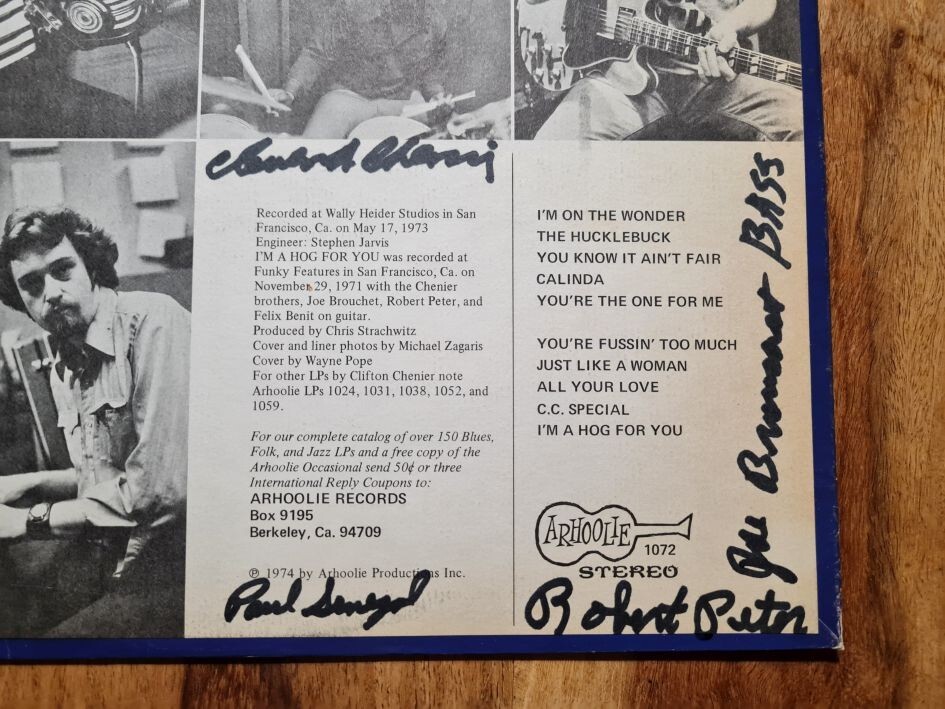 Recorded at Wally Heider Studios in San
Francisco, Ca. on May 17, 1973
Engineer: Stephen Jarvis
I'M A HOG FOR YOU was recorded at
Funky Features in San Francisco, Ca. on
November 29, 1971 with the Chenier
brothers, Joe Brouchet, Robert Peter, and
Felix Benit on guitar.
Produced by Chris Strachwitz
Cover and liner photos by Michael Zagaris
Cover by Wayne Pope
For other LPs by Clifton Chenier note
Arhoolie LPs 1024, 1031, 1038, 1052, and
1059.
For our complete catalog of over 150 Blues,
Folk, and Jazz LPs and a free copy of the
Arhoolie Occasional send 50¢ or three
International Reply Coupons to:
ARHOOLIE RECORDS
Box 9195
Berkeley, Ca. 94709
℗ 1974 by Arhoolie Productions Inc.
Paul Senegal
I'M ON THE WONDER
THE HUCKLEBUCK
YOU KNOW IT AIN'T FAIR
CALINDA
YOU'RE THE ONE FOR ME
YOU'RE FUSSIN' TOO MUCH
JUST LIKE A WOMAN
ALL YOUR LOVE
C.C. SPECIAL
I'M A HOG FOR YOU
ARHOOLIE
1072
STEREO
Robert Peter
Joe BASS